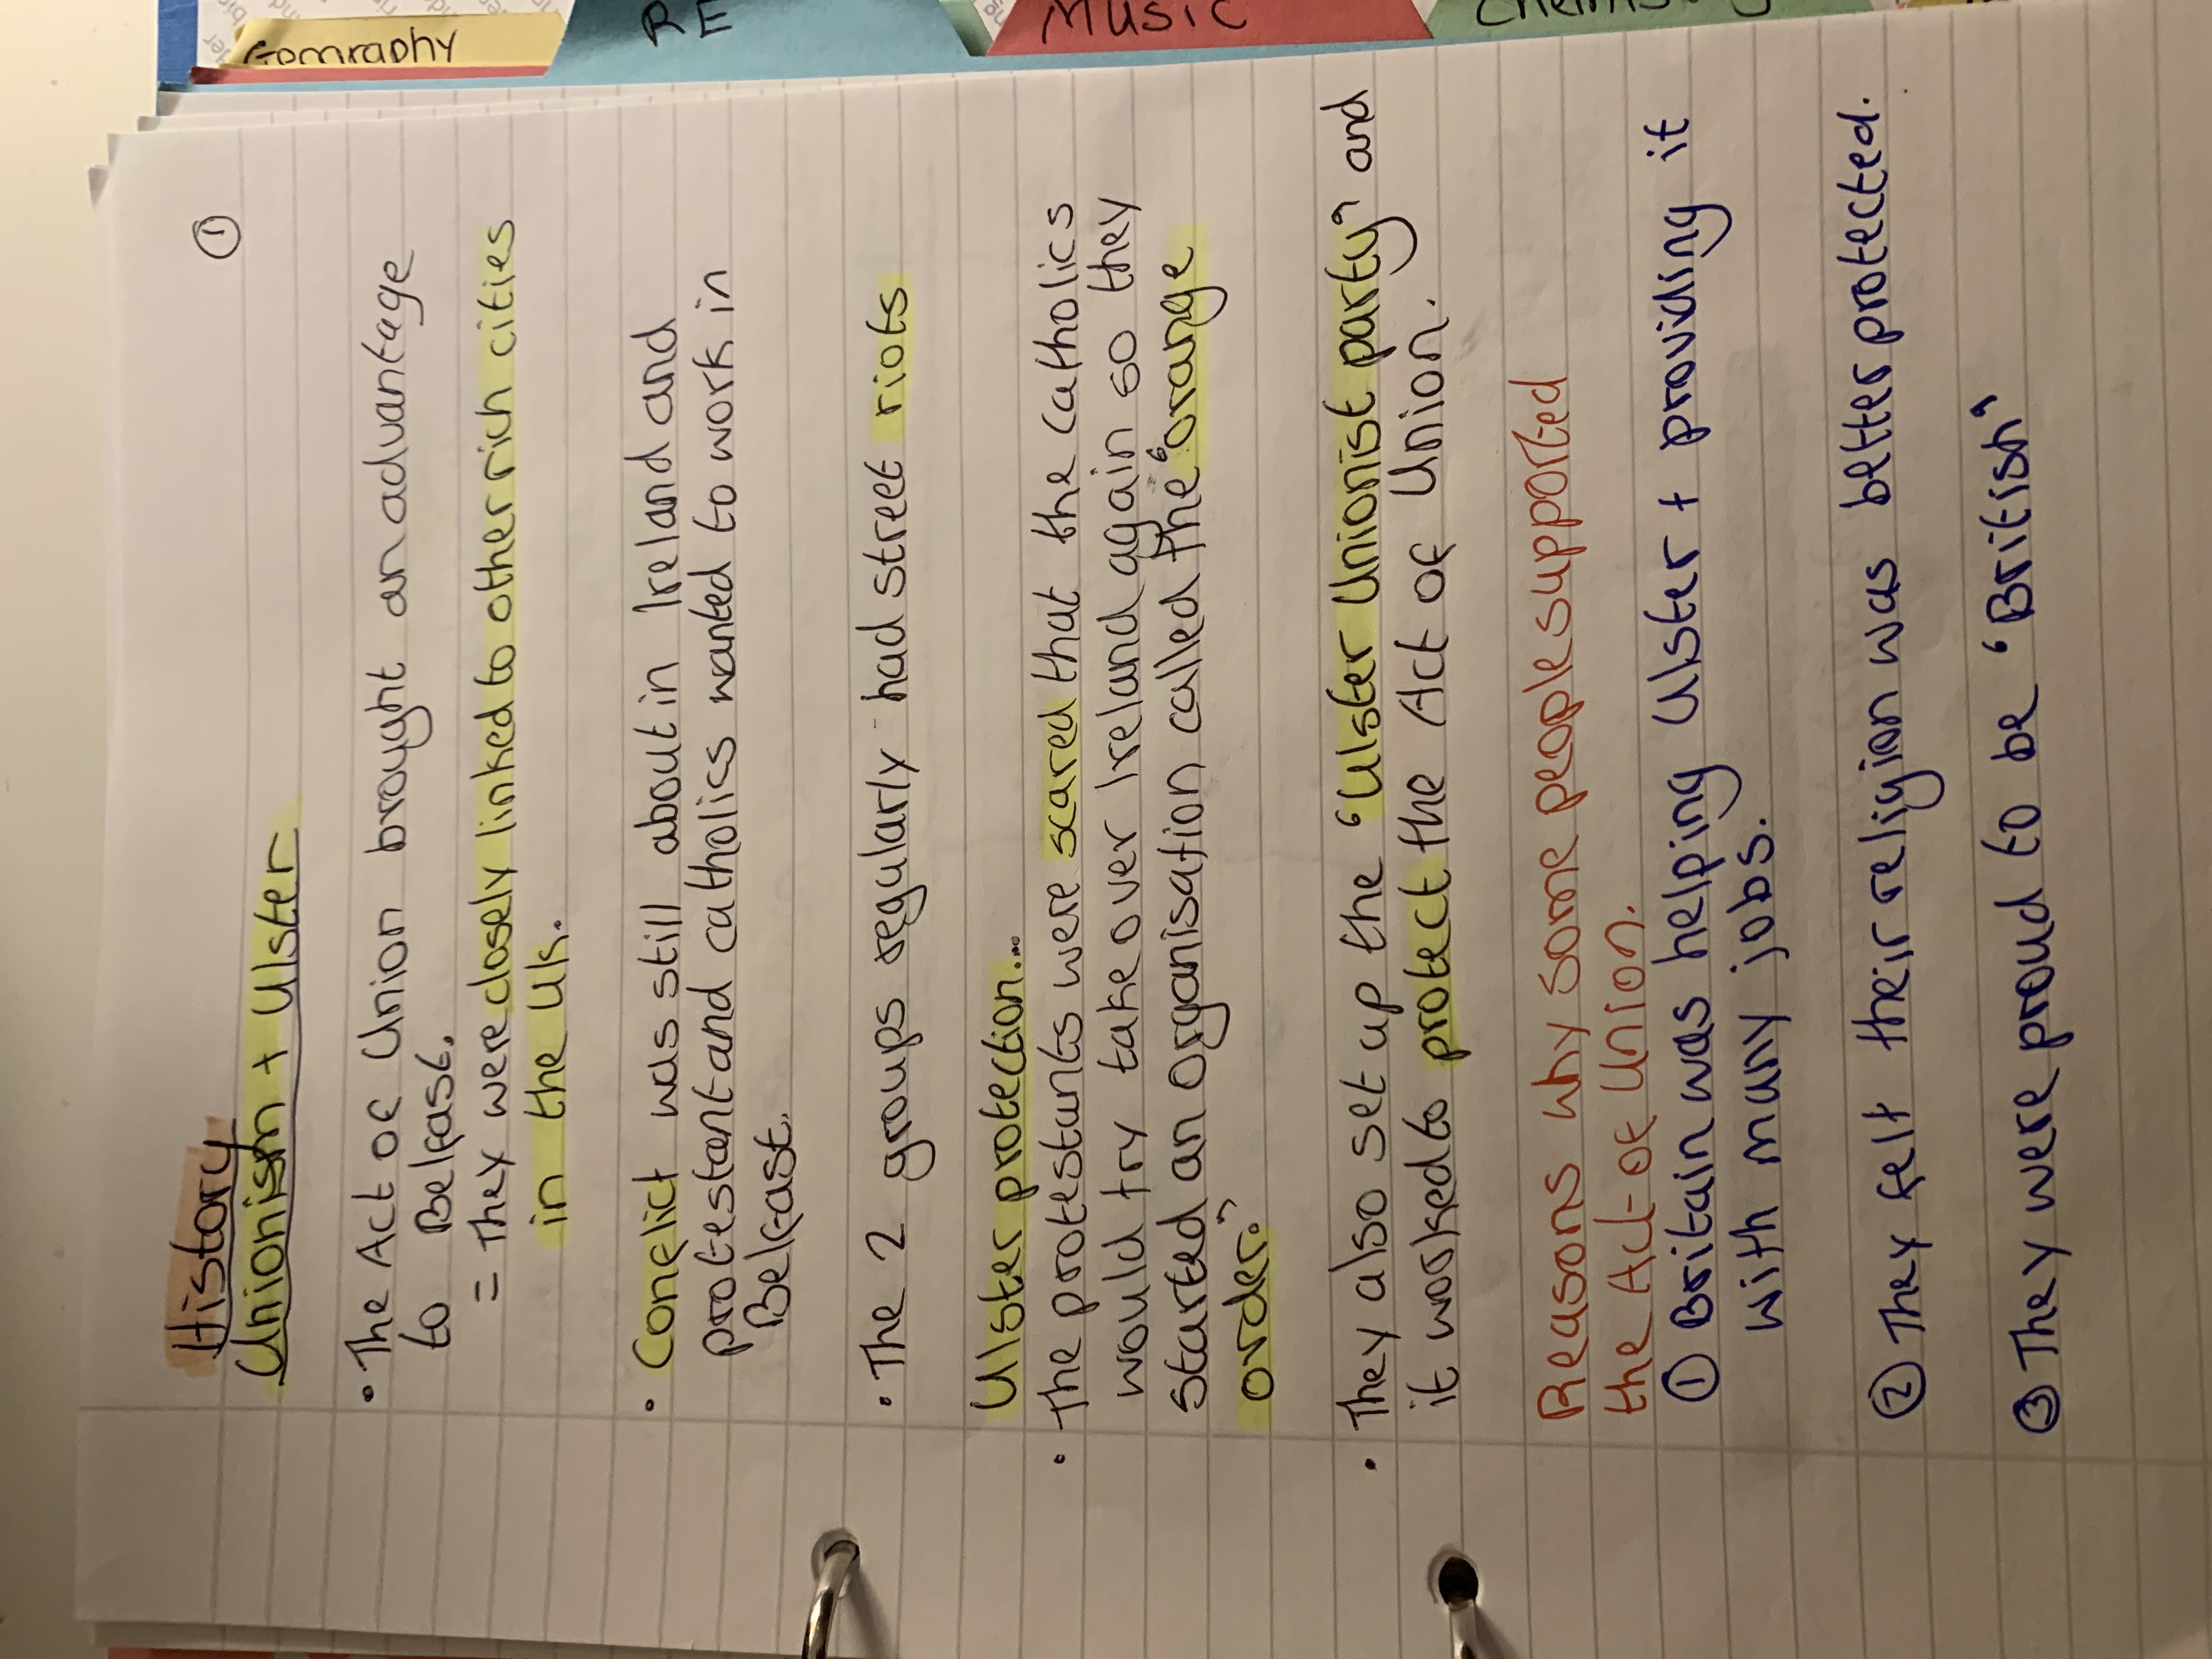 Geography
RE
Music
Chemistry
①
History
Unionism + Ulster
• The Act of Union brought an advantage
to Belfast.
= They were closely linked to other rich cities
in the UK.
• Conflict was still about in Ireland and
protestant and catholics wanted to work in
Belfast.
• The 2 groups regularly had street riots
Ulster protection...
• The protestants were scared that the catholics
would try take over Ireland again so they
started an organisation called the "orange
order."
• They also set up the "Ulster Unionist party" and
it worked to protect the Act of Union.
Reasons why some people supported
the Act of Union.
① Britain was helping Ulster + providing it
with many jobs.
② They felt their religion was better protected.
③ They were proud to be "British"